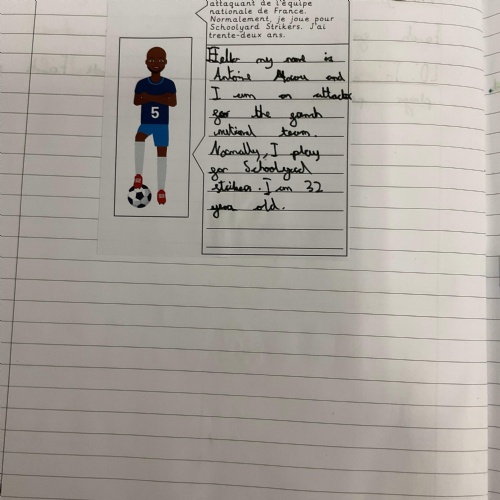 attaquant de l'équipe
nationale de France.
Normalement, je joue pour
Schoolyard Strikers. J'ai
trente-deux ans.
5
Hello my name is
Antoine and
I am an attacker
for the
national team.
Normally, I play
for Schoolyard
strikers. I am 32
year old.